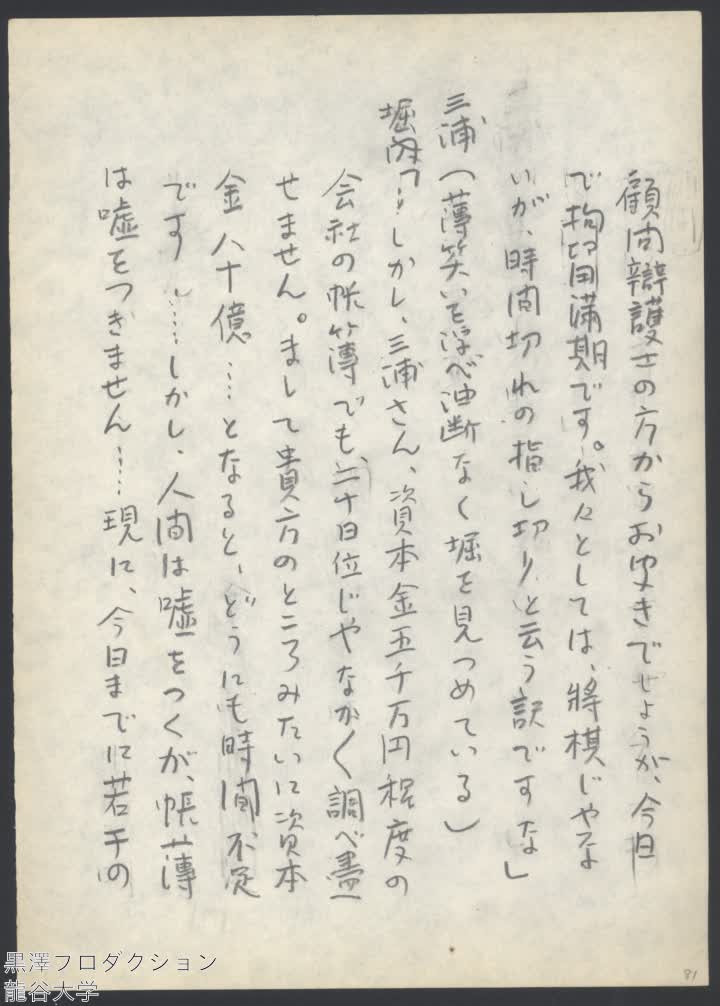 顧問辯護士の方からお聞きでせうが、今日
で拘留満期です。我々としては、將棋じやな
いが、時間切れの指し切りと云う訳ですな」
三浦（薄笑いを浮べ油断なく堀を見つめている）
堀内「…しかし、三浦さん、資本金五千万円程度の
会社の帳簿でも、二十日位じやなかく調べ盡
せません。まして貴方のところみたいに資本
金八十億…となると、どうにも時間不足
です……しかし、人間は嘘をつくが、帳簿
は嘘をつきません……現に、今日までに若干の
81
黒澤プロダクション
龍谷大学